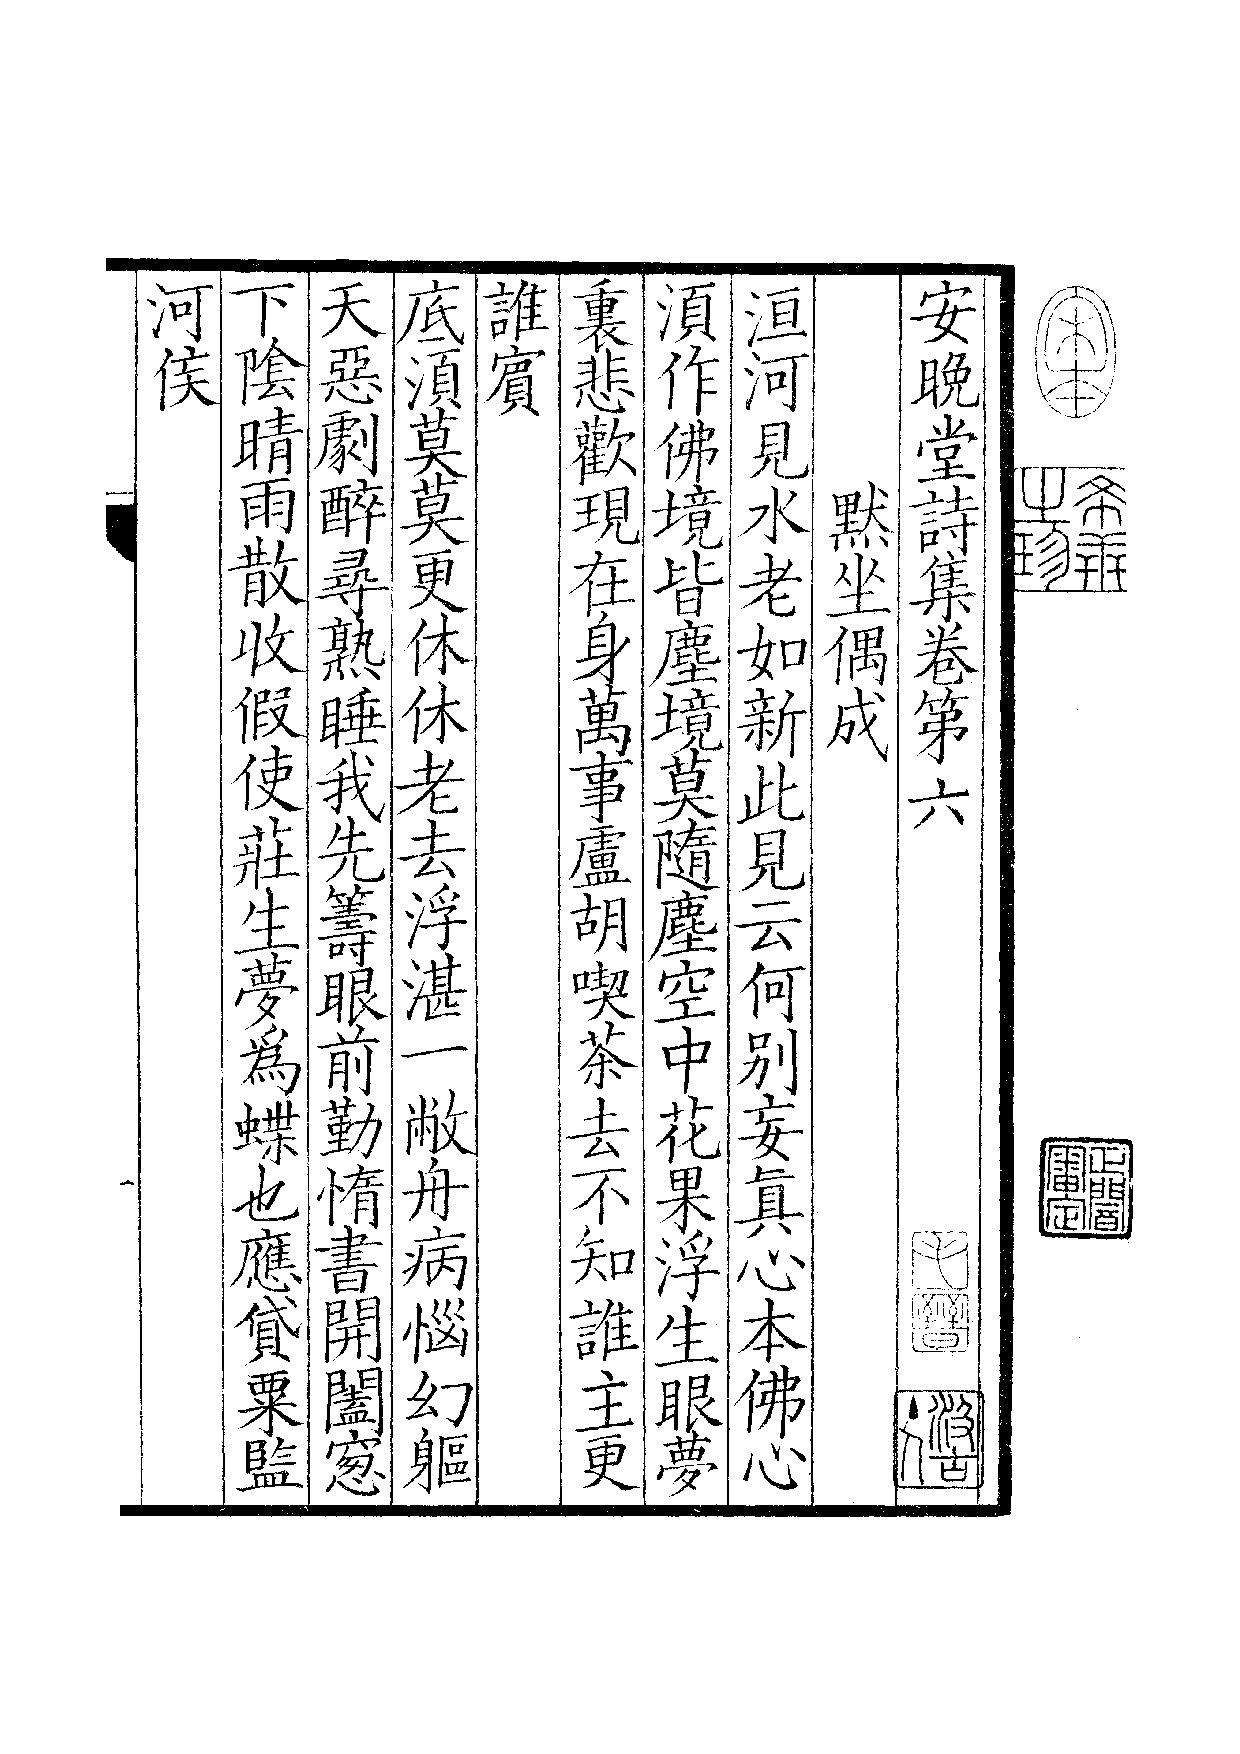 安晚堂詩集卷第六
默坐偶成
洹河見水老如新此見云何别妄眞心本佛心
湏作佛境皆塵境莫隨塵空中花果浮生眼夢
裏悲歡現在身萬事盧胡喫茶去不知誰主更
誰賔
底湏莫莫更休休老去浮湛一敝舟病惱幻軀
天惡劇醉尋熟睡我先籌眼前勤惰書開闔窓
下陰晴雨散收假使莊生夢爲蝶也應貸粟監
河侯
宋本
希世之珍
毛晉
汲古主人